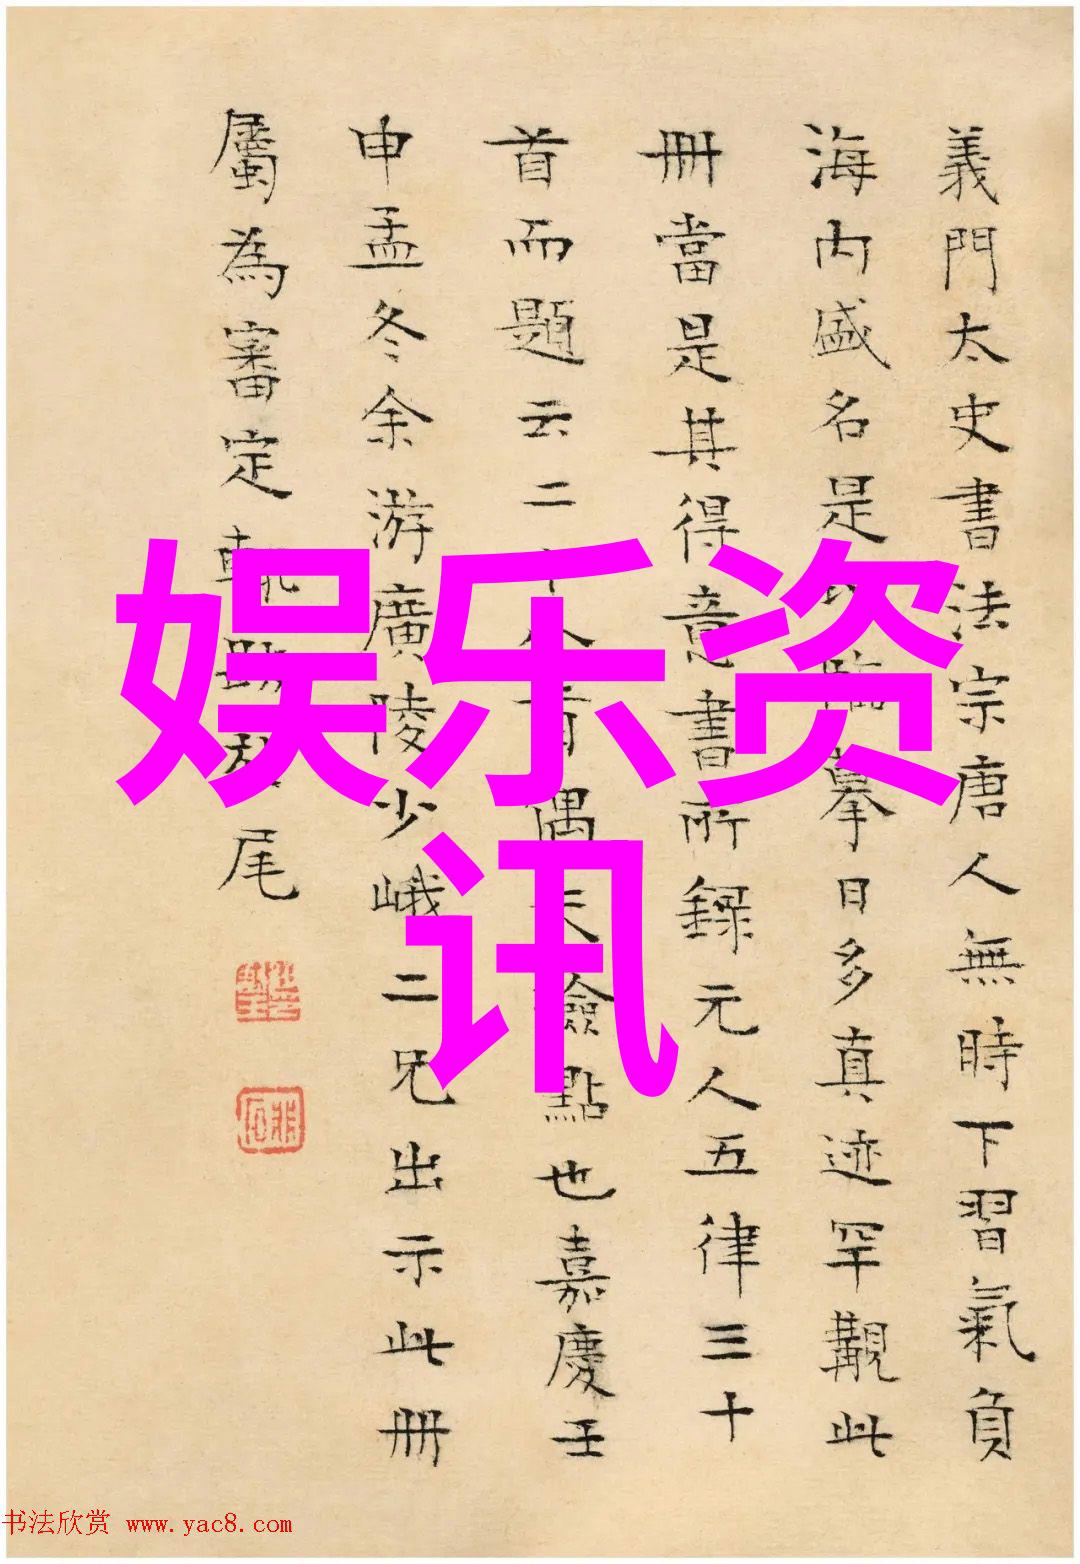 義門太史書法宗唐人無時下習氣負
海内盛名是臨摹日多真迹罕覯此
冊當是其得意書所録元人五律三十
首而題云二十人者偶失檢點也嘉慶壬
申孟冬余游廣陵少峨二兄出示此冊
屬為審定輒跋尾
娱乐资
讯
书法欣赏 www.yac8.com